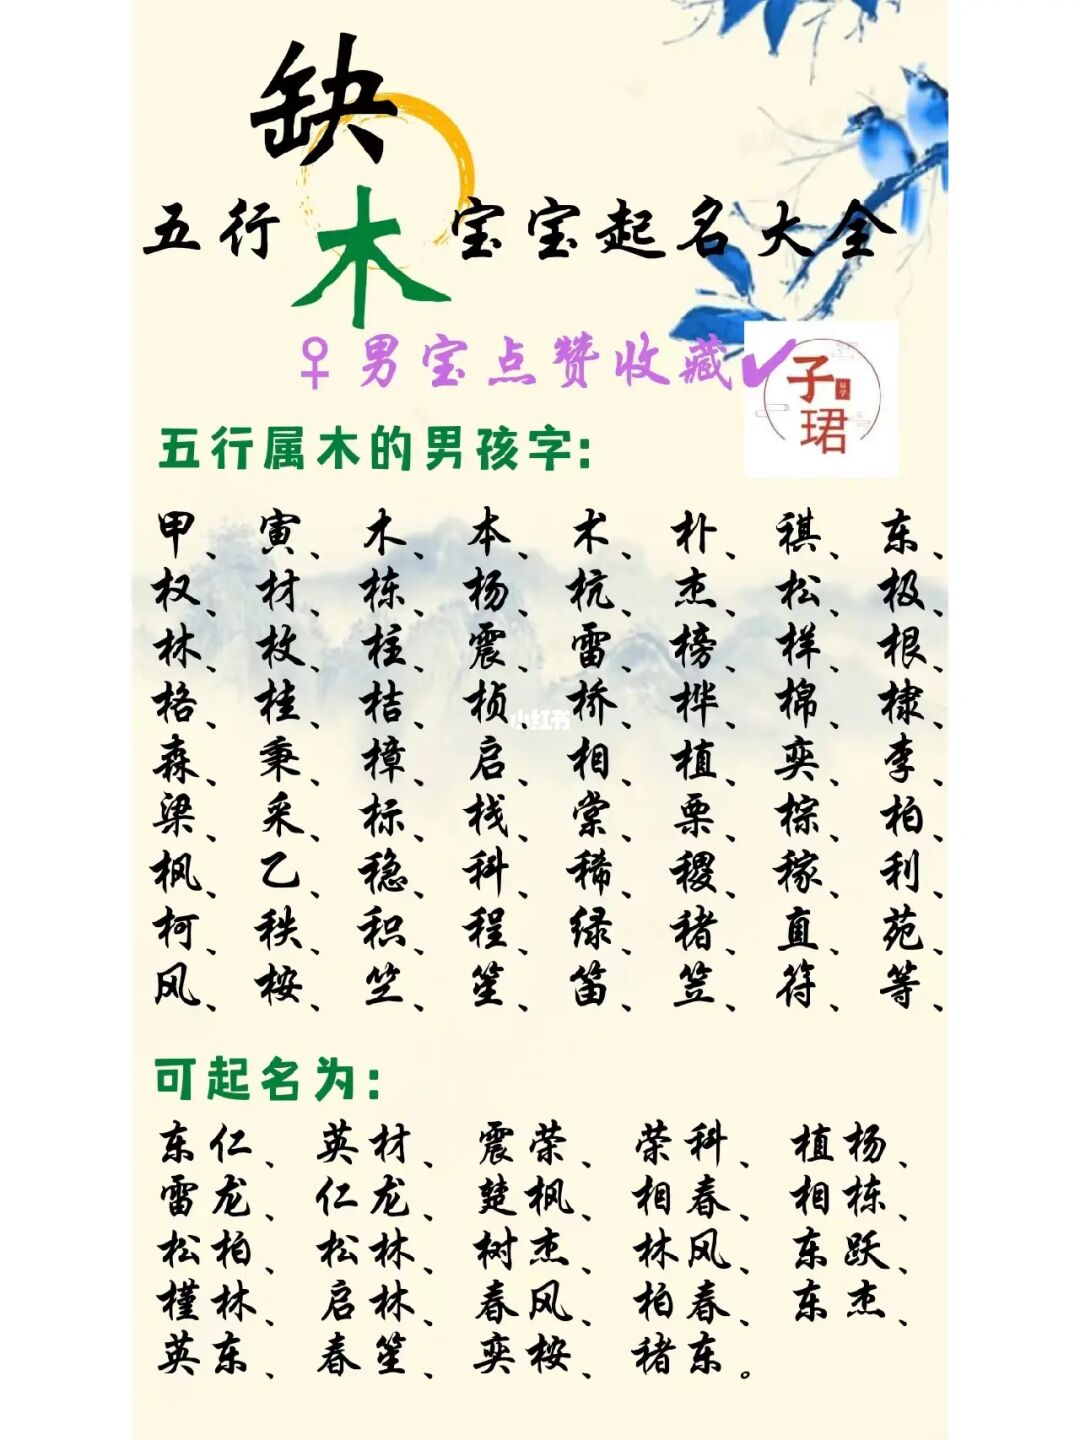 缺
五行木宝宝起名大全
♀男宝点赞收藏✓
子珺
易学
五行属木的男孩字:
甲、寅、木、本、术、朴、祺、东、
权、材、栋、杨、杭、杰、松、极、
林、枚、柱、震、雷、榜、样、根、
格、桂、桔、桢、桥、桦、棉、棣、
小红书
森、秉、樟、启、相、植、奕、李、
梁、采、标、栈、棠、栗、棕、柏、
枫、乙、稳、科、稀、稷、稼、利、
柯、秩、积、程、绿、稀、直、苑、
风、桉、竺、笙、笛、笠、符、等、
可起名为:
东仁、英材、震荣、荣科、植杨、
雷龙、仁龙、楚枫、相春、相栋、
松柏、松林、树杰、林风、东跃、
槿林、启林、春风、柏春、东杰、
英东、春笙、奕桉、锗东。